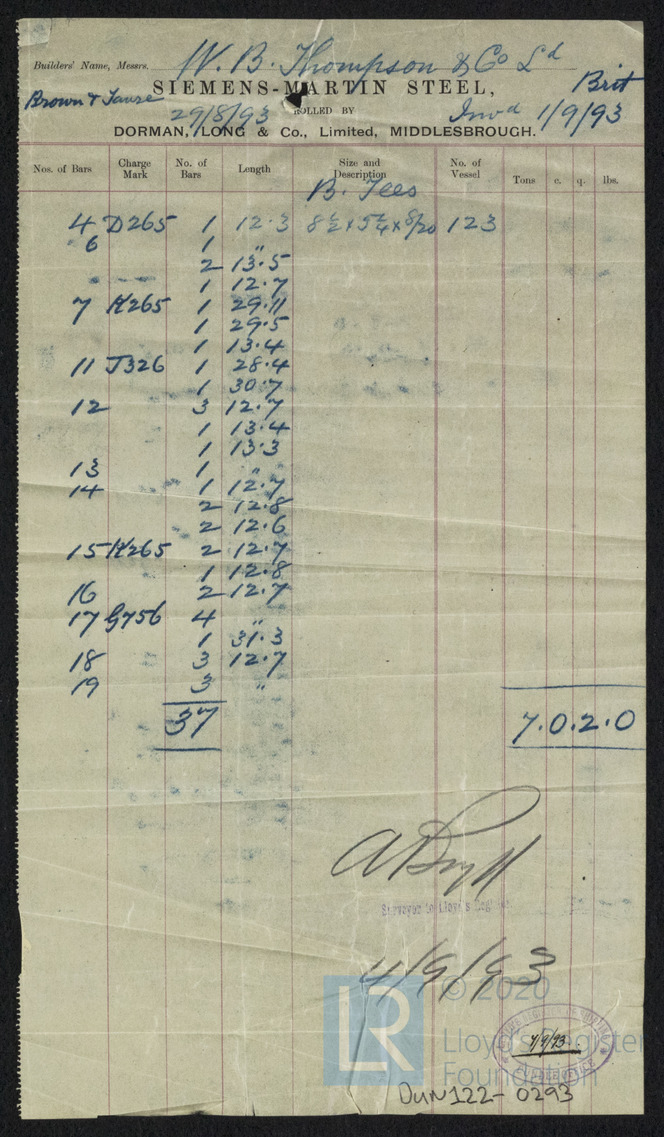 Builders' Name, Messrs. W. B. Thompson & Co Ld
SIEMENS-MARTIN STEEL, Brit
Brown & 29/8/93 ROLLED BY Invd 1/9/93
DORMAN, LONG & Co., Limited, MIDDLESBROUGH.
Nos. of Bars Charge Mark No. of Bars Length Size and Description No. of Vessel Tons c. q. lbs.
B. Tees
4 D265 1 12.3 8½ x 5¼ x 8/20 123
6 1 "
2 13.5
1 12.7
7 K265 1 29.11
1 29.5
1 13.4
11 J326 1 28.4
1 30.7
12 3 12.7
1 13.4
1 13.3
13 1 "
14 1 12.7
2 12.8
2 12.6
15 K265 2 12.7
1 12.8
16 2 12.7
17 G756 4 "
1 31.3
18 3 12.7
19 3 "
37 7.0.2.0
Surveyor to Lloyd's Register
4/9/93
LR © 2020
Lloyd's Register
Foundation
7/9/93
DUN122-0293